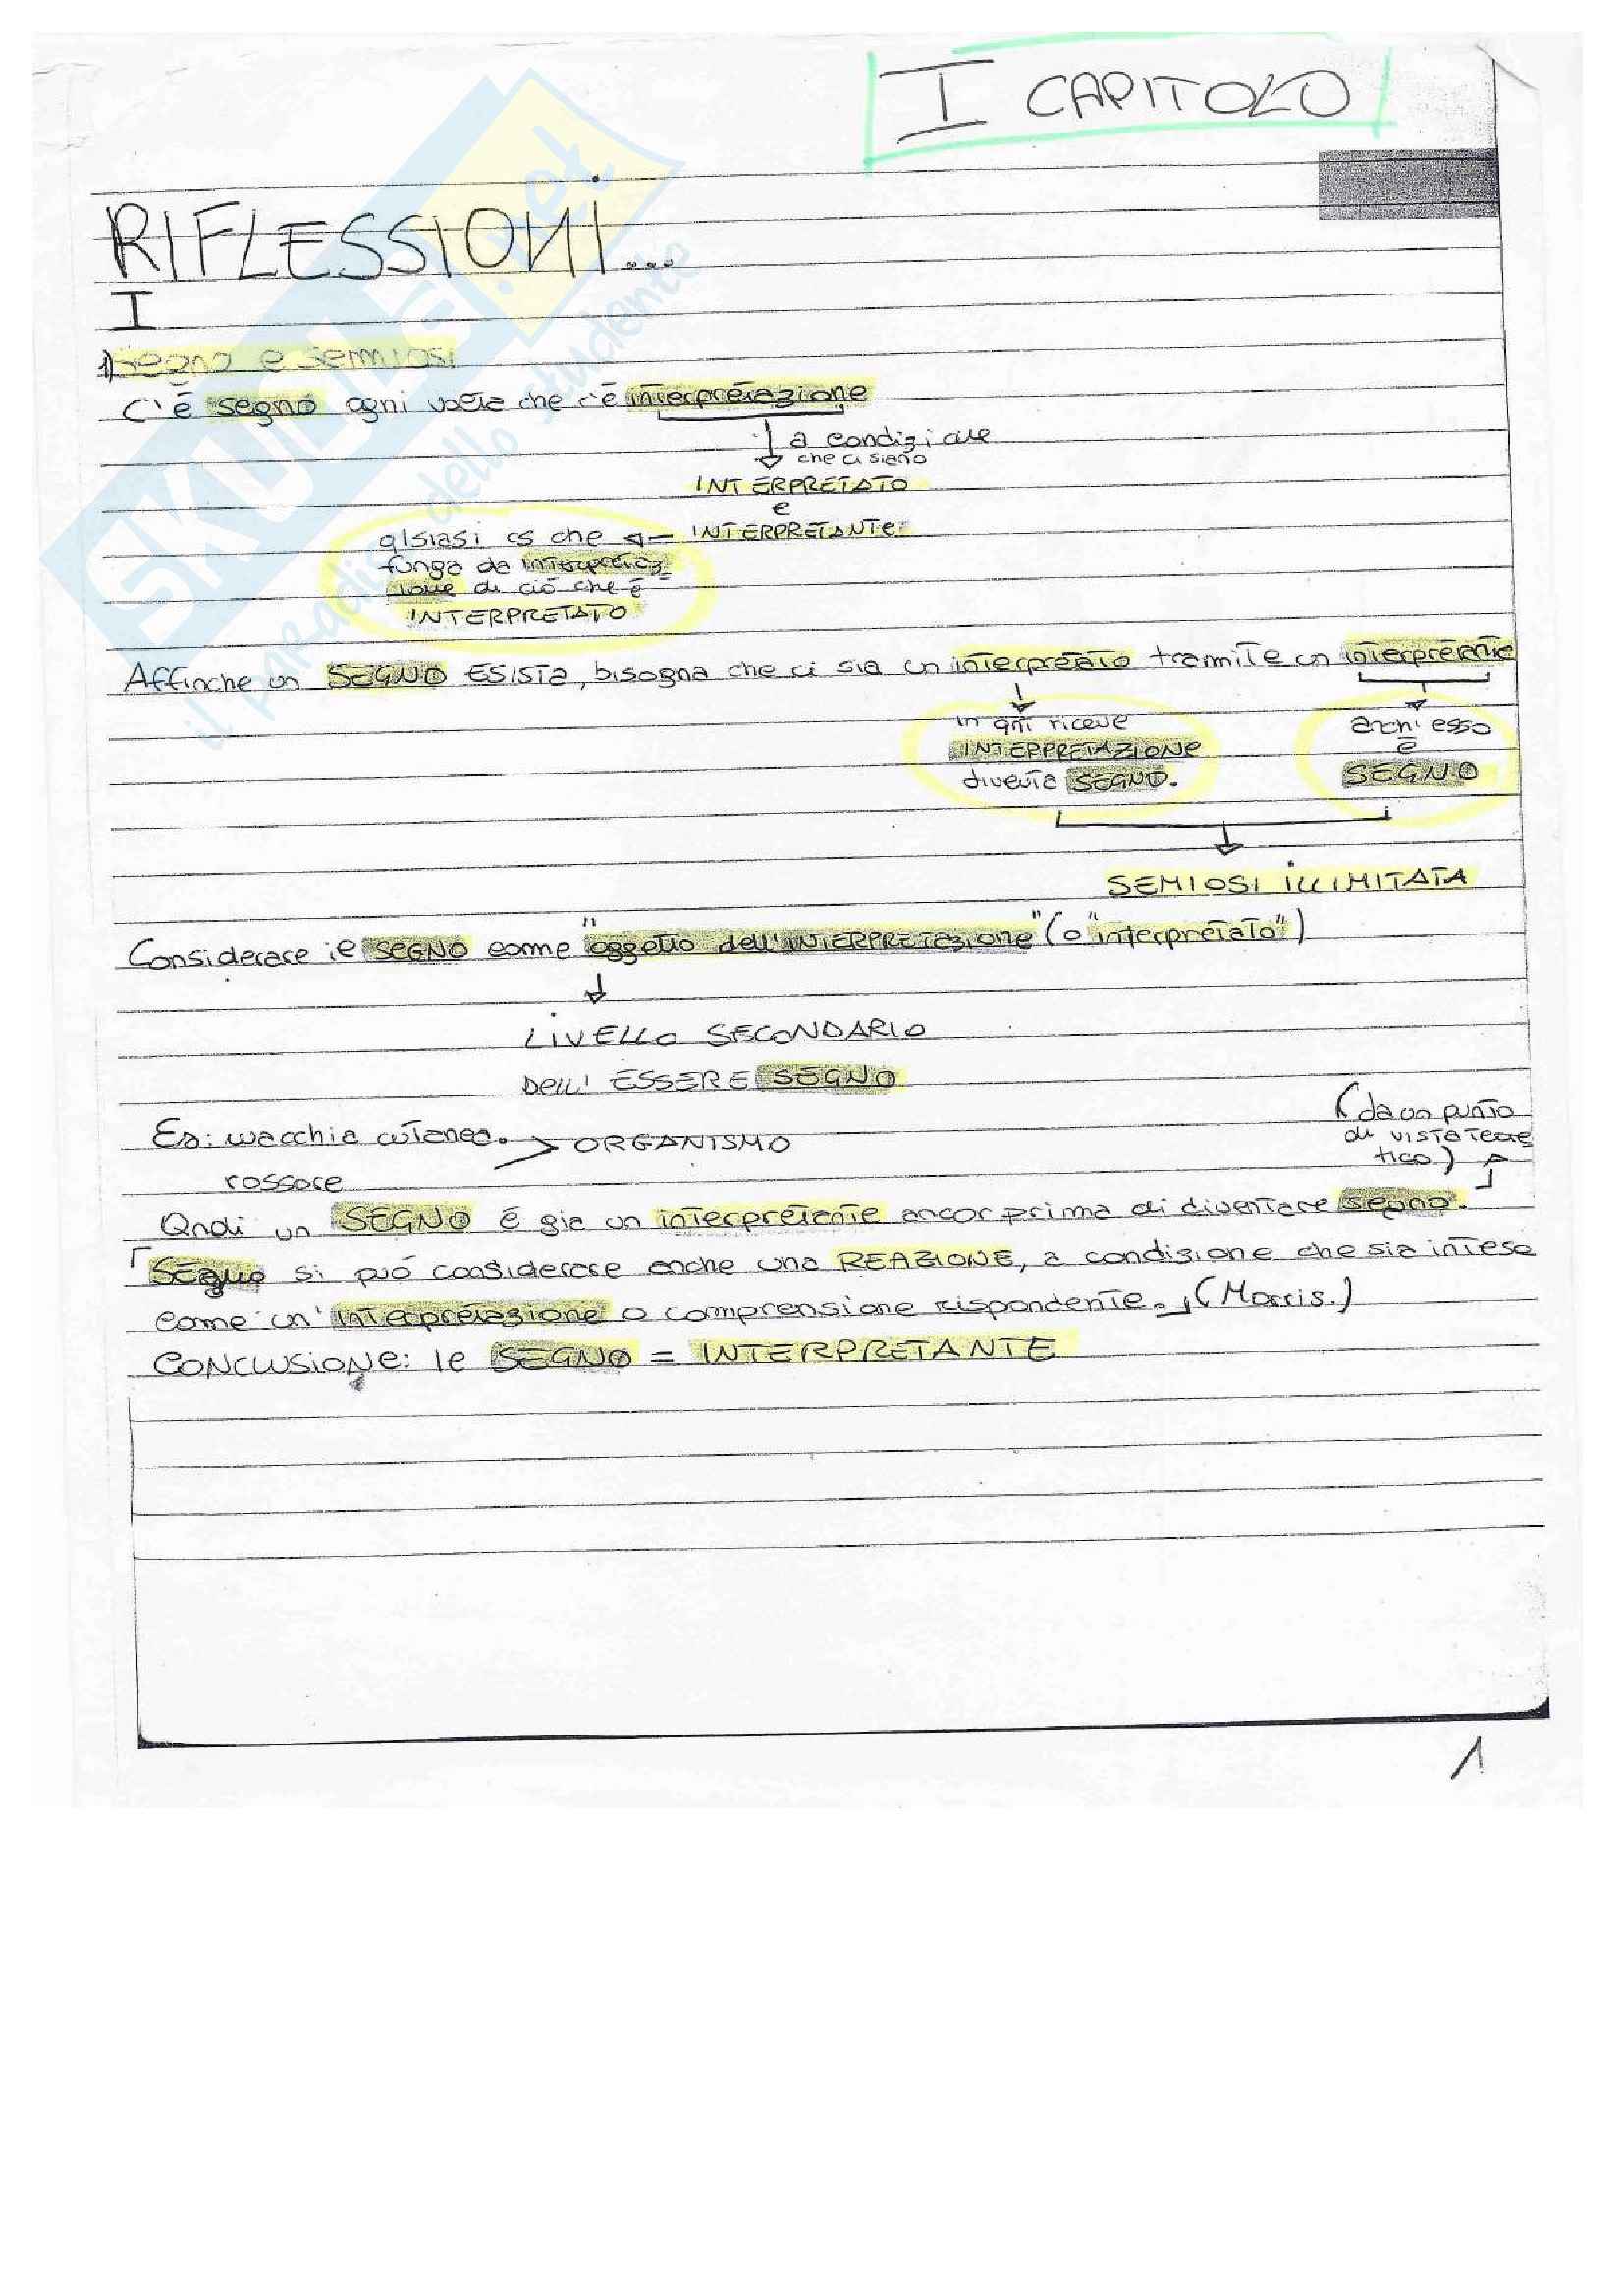 I CAPITOLO
RIFLESSIONI...
I
1) Segno e semiosi
C'è segno ogni volta che c'è interpretazione
a condizione
che ci siano
INTERPRETATO
e
qlsiasi cs che ← INTERPRETANTE
funga da interpretaz
ione di ciò che è
INTERPRETATO
Affinche un SEGNO ESISTA, bisogna che ci sia un interpretato tramite un interpretante
in qnt riceve
INTERPRETAZIONE
diventa SEGNO.
anch'esso
è
SEGNO
SEMIOSI ILLIMITATA
Considerare il SEGNO come "oggetto dell'INTERPRETAZIONE" (o "interpretato")
LIVELLO SECONDARIO
DELL' ESSERE SEGNO
Es: macchia cutanea. > ORGANISMO
rossore
(da un punto
di vista teore
tico)
Qndi un SEGNO è gia un interpretante ancor prima di diventare segno.
Segno si può considerare anche una REAZIONE, a condizione che sia intesa
come un' interpretazione o comprensione rispondente. (Morris.)
CONCLUSIONE: il SEGNO = INTERPRETANTE
1
SKUOLA.net
il paradiso dello studente